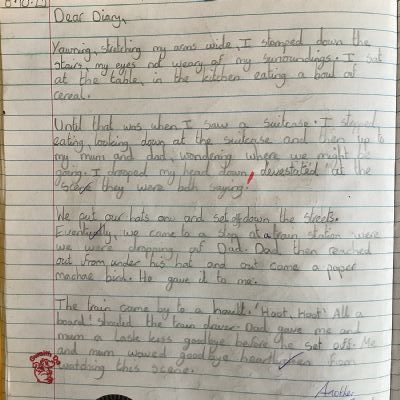 8.10.20
Dear Diary,
Yawning, stretching my arms wide, I stomped down the
stairs, my eyes not weary of my surroundings. I sat
at the table, in the kitchen eating a bowl of
cereal.
Until that was when I saw a suitcase. I stopped
eating, looking down at the suitcase and then up to
my mum and dad, wondering where we might be
going. I dropped my head down, devestated at the
scene they were both saying.
We put our hats onw and set of down the streets.
Eventually, we came to a stop at a train station were
we were dropping of Dad. Dad then reached
out from under his hat and out came a paper
machae bird. He gave it to me.
The train came by to a hault. 'Hoot, Hoot! All a
board' shouted the train driver. Dad gave me and
mum a laste kiss goodbye before he set off. Me
and mum waved goodbye from
watching this scene.
Another